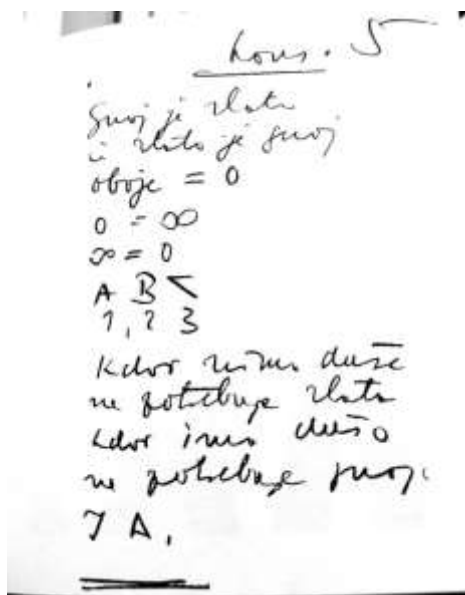 Kons. 5
Gnoj je zlato
in zlato je gnoj
oboje = 0
0 = ∞
∞ = 0
A B <
1, 2 3
Kdor nima duše
ne potrebuje zlata
kdor ima dušo
ne potrebuje gnoja.
I A,